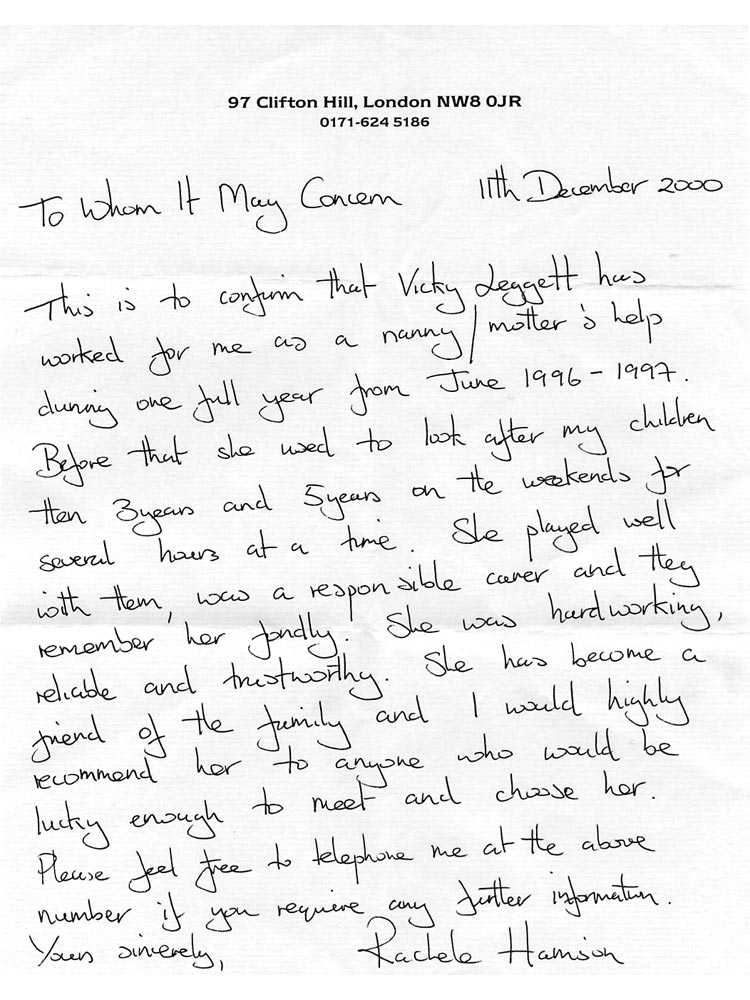 97 Clifton Hill, London NW8 0JR
0171-624 5186
To Whom It May Concern 11th December 2000
This is to confirm that Vicky Leggett has
worked for me as a nanny/mother's help
during one full year from June 1996 - 1997.
Before that she used to look after my children
then 3years and 5years on the weekends for
several hours at a time. She played well
with them, was a responsible carer and they
remember her fondly. She was hardworking,
reliable and trustworthy. She has become a
friend of the family and I would highly
recommend her to anyone who would be
lucky enough to meet and choose her.
Please feel free to telephone me at the above
number if you require any further information.
Yours sincerely, Rachele Harrison